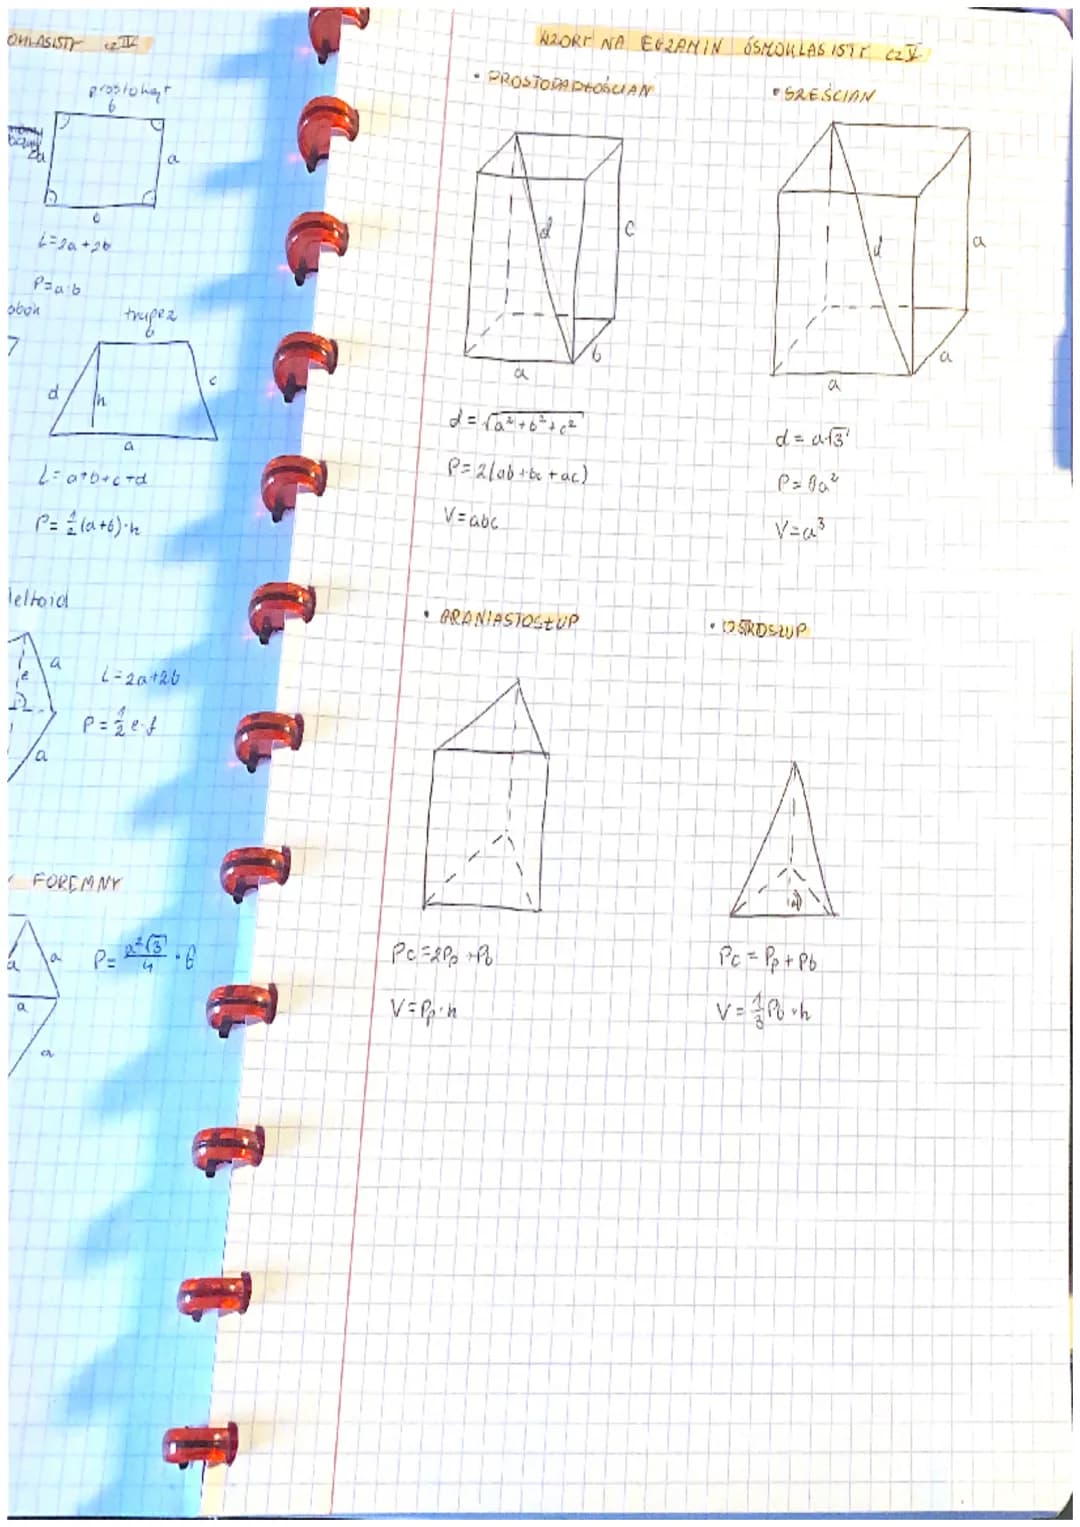 cz IV
prostokąt
b
a
b
L=2a+2b
P=a·b
trapez
b
d
h
c
a
L=a+b+c+d
P=1/2(a+b)·h
deltoid
a
e
a
L=2a+2b
P=1/2 e·f
FOREMNY
a
a
a
a
P=a²√3/4 ·6
WZORY NA EGZAMIN ÓSMOKLASISTY cz V
• PROSTOPADŁOŚCIAN
d
c
b
a
d=√a²+b²+c²
P=2(ab+bc+ac)
V=abc
• SZEŚCIAN
d
a
a
a
d=a√3
V=a³
• GRANIASTOSŁUP
Pc=2Pp+Pb
V=Pp·h
• OSTROSŁUP
Pc=Pp+Pb
V=1/3Pb·h